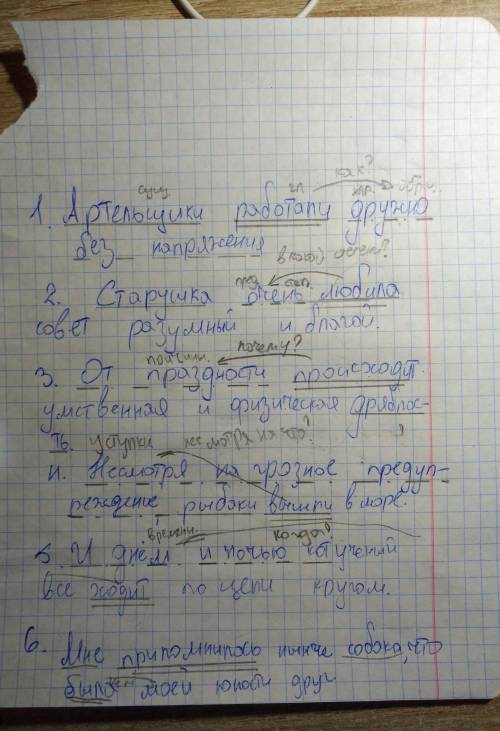 сущ. гл. как? нар. обр.
1. Артельщики работали дружно
без напряжения
в какой степени?
2. Старушка очень любила
совет разумный и благой.
причины. почему?
3. От праздности происходит
умственная и физическая дряблос-
ть. уступки несмотря на что?
4. Несмотря на грозное предуп-
реждение рыбаки вышли в море.
времени. когда?
5. И днём и ночью кот учений
все ходит по цепи кругом.
6. Мне припомнилось нынче собака, что
была моей юности друг